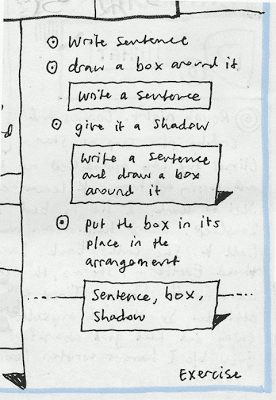 write sentence
draw a box around it
write a sentence
give it a shadow
write a sentence
and draw a box
around it
put the box in its
place in the
arrangement
Sentence, box,
Shadow
Exercise